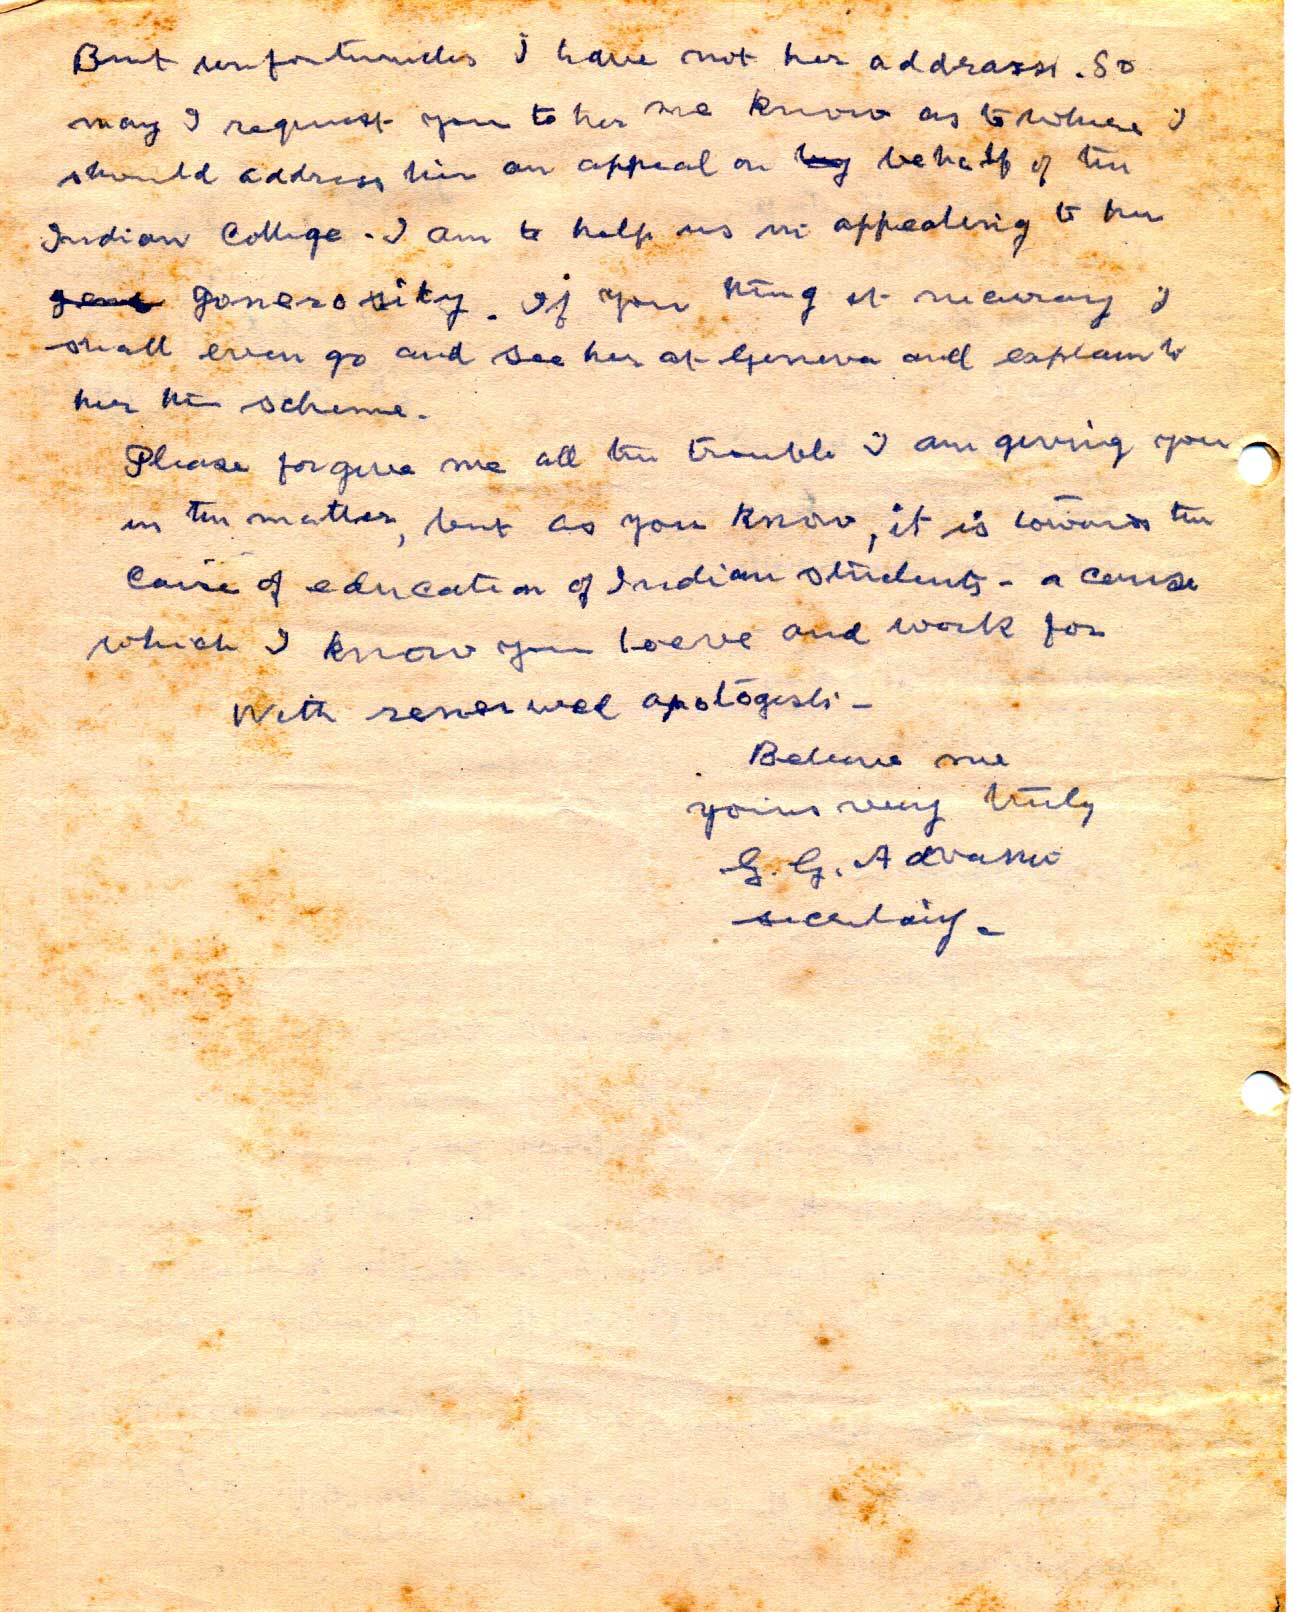 But unfortunately I have not her address. So
may I request you to let me know as to where I
should address her an appeal on by behalf of the
Indian College. I am to help us in appealing to her
gene generosity. If you think it necessary I
shall even go and see her at Geneva and explain to
her the scheme.
Please forgive me all the trouble I am giving you
in the matter, but as you know, it is towards the
cause of education of Indian students - a cause
which I know you loeve and work for
With renewed apologies -
Believe me
yours very truly
G. G. Advani
secretary.